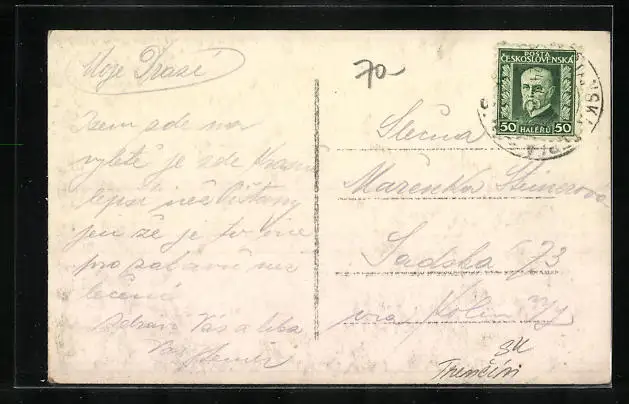 Moje Drazé
Jsem zde na
výletě je zde krásně
lepší než Píšťany
jen že je to více
pro zábavu než
léčení
Zdraví Vás a líbá
Váš
70
POSTA
ČESKOSLOVENSKÁ
50 HALÉŘŮ 50
Slečna
Mařenka Steinerova
Sadská 73
via Kolín
Trenčín